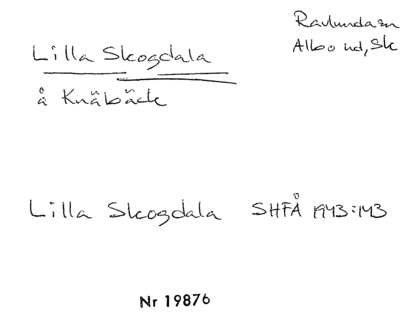 Ravlunda sn
Albo hd, Sk
Lilla Skogdala
å Knäbäck
Lilla Skogdala SHFÅ 1943:143
Nr 19876